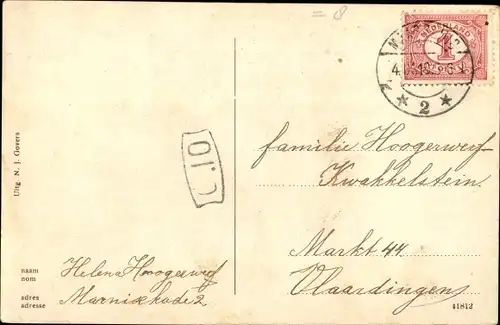 = 8
NEDERLAND
1
CENT
2
L.10
Uitg. N. J. Govers
familie Hoogerwerf
Kwakkelstein.
Markt 44
Vlaardingen
naam
nom
Helena Hoogerwerf
adres
adresse
Marnixkade 2
41812